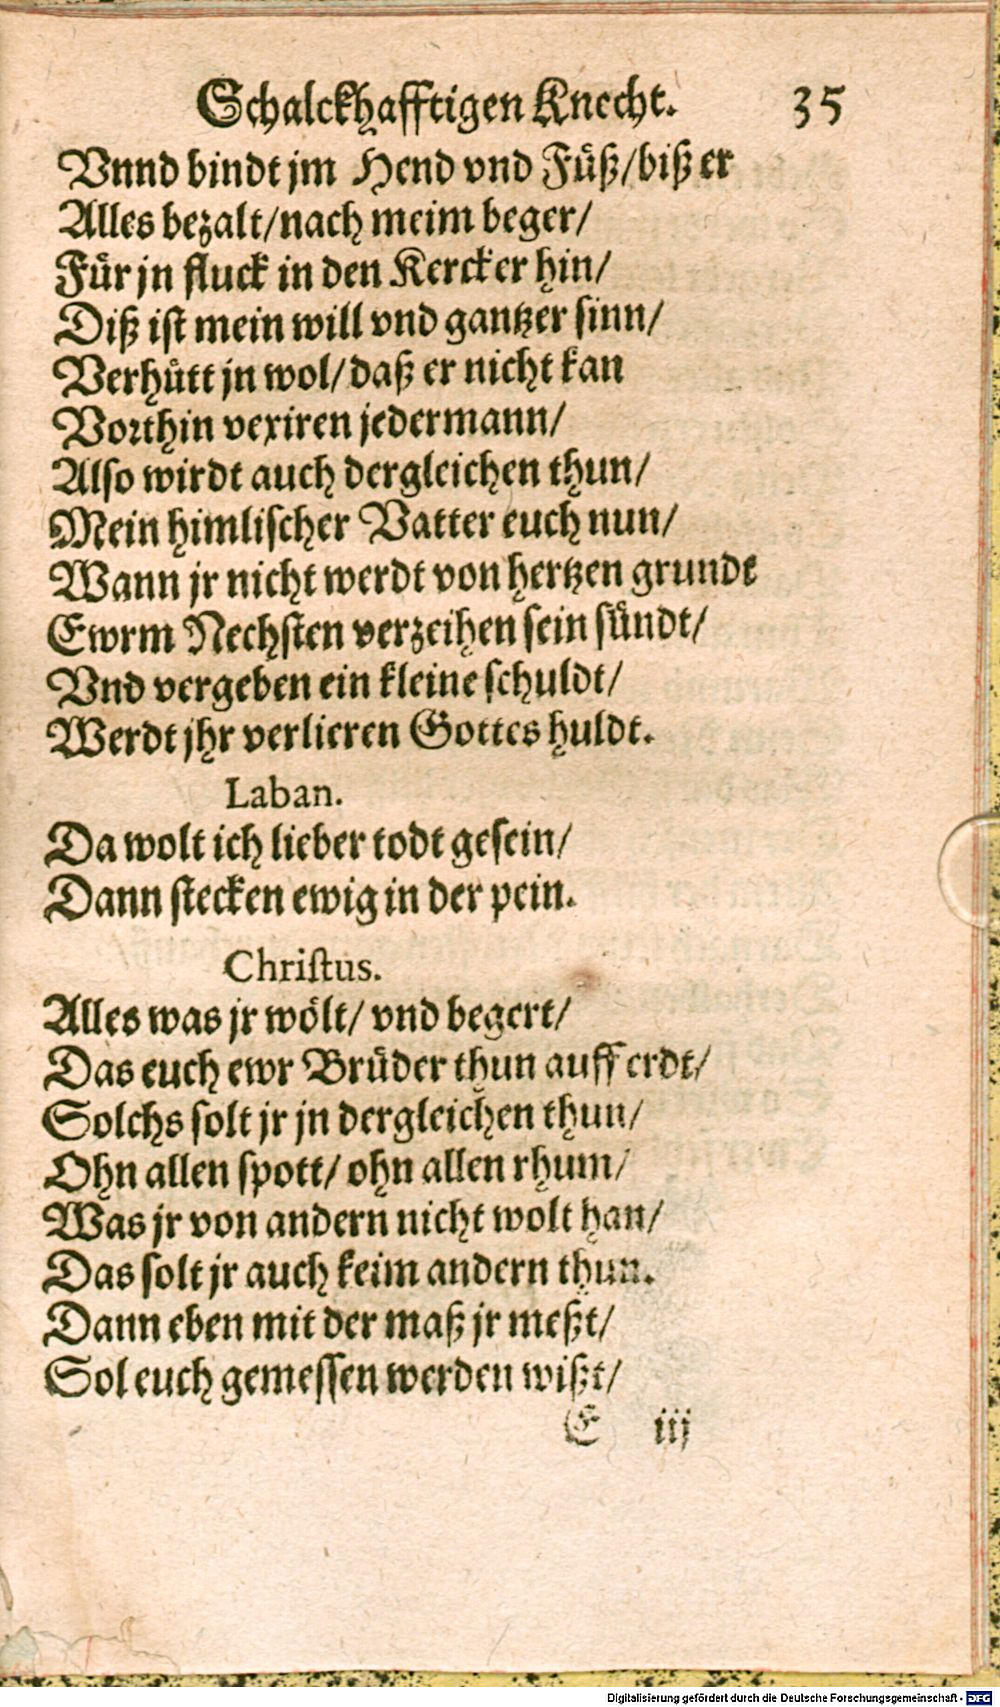 Schalckhafftigen Knecht. 35
Vnnd bindt jm Hend vnd Füß/biß er
Alles bezalt/nach meim beger/
Für jn fluck in den Kercker hin/
Diß ist mein will vnd gantzer sinn/
Verhütt jn wol/daß er nicht kan
Vorthin vexiren jedermann/
Also wirdt auch dergleichen thun/
Mein himlischer Vatter euch nun/
Wann jr nicht werdt von hertzen grundt
Ewrm Nechsten verzeihen sein sündt/
Vnd vergeben ein kleine schuldt/
Werdt jhr verlieren Gottes huldt.
Laban.
Da wolt ich lieber todt gesein/
Dann stecken ewig in der pein.
Christus.
Alles was jr wölt/ vnd begert/
Das euch ewr Brüder thun auff erdt/
Solchs solt jr jn dergleichen thun/
Ohn allen spott/ ohn allen rhum/
Was jr von andern nicht wolt han/
Das solt jr auch keim andern thun.
Dann eben mit der maß jr meßt/
Sol euch gemessen werden wißt/
E iij
Digitalisierung gefördert durch die Deutsche Forschungsgemeinschaft - DFG